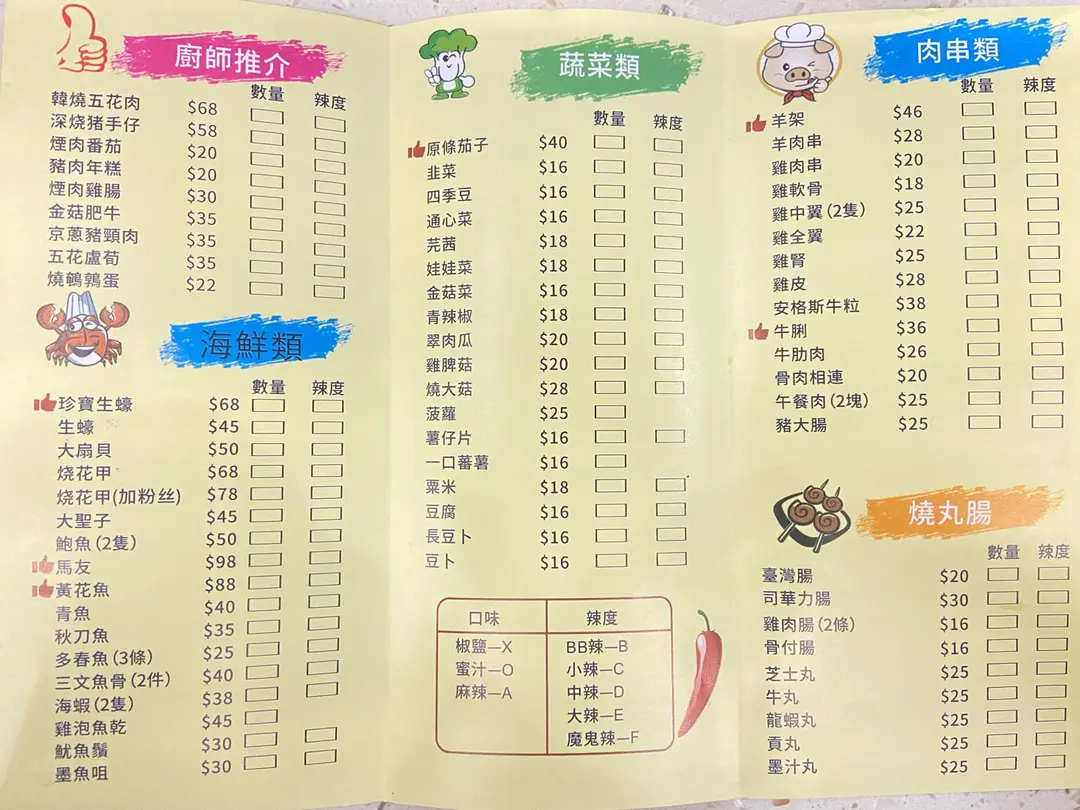 廚師推介
數量 辣度
韓燒五花肉 $68
深烧猪手仔 $58
煙肉番茄 $20
豬肉年糕 $20
煙肉雞腸 $30
金菇肥牛 $35
京蔥豬頸肉 $35
五花盧荀 $35
燒鵪鶉蛋 $22
海鮮類
數量 辣度
珍寶生蠔 $68
生蠔 $45
大扇貝 $50
烧花甲 $68
烧花甲(加粉丝) $78
大聖子 $45
鮑魚(2隻) $50
馬友 $98
黃花魚 $88
青魚 $40
秋刀魚 $35
多春魚(3條) $25
三文魚骨(2件) $40
海蝦(2隻) $38
雞泡魚乾 $45
魷魚鬚 $30
墨魚咀 $30
蔬菜類
數量 辣度
原條茄子 $40
韭菜 $16
四季豆 $16
通心菜 $16
芫茜 $18
娃娃菜 $18
金菇菜 $16
青辣椒 $18
翠肉瓜 $20
雞脾菇 $20
燒大菇 $28
菠蘿 $25
薯仔片 $16
一口蕃薯 $16
粟米 $18
豆腐 $16
長豆卜 $16
豆卜 $16
口味 辣度
椒鹽—X BB辣—B
蜜汁—O 小辣—C
麻辣—A 中辣—D
大辣—E
魔鬼辣—F
肉串類
數量 辣度
羊架 $46
羊肉串 $28
雞肉串 $20
雞軟骨 $18
雞中翼(2隻) $25
雞全翼 $22
雞腎 $25
雞皮 $28
安格斯牛粒 $38
牛脷 $36
牛肋肉 $26
骨肉相連 $20
午餐肉(2塊) $25
豬大腸 $25
燒丸腸
數量 辣度
臺灣腸 $20
司華力腸 $30
雞肉腸(2條) $16
骨付腸 $16
芝士丸 $25
牛丸 $25
龍蝦丸 $25
貢丸 $25
墨汁丸 $25